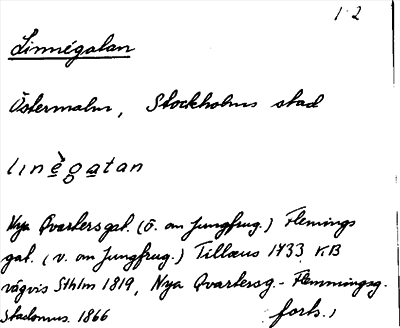 1-2
Linnégatan
Östermalm, Stockholms stad
linègatan
Nya Qvartersgat. (ö. om Jungfrug.) Flemings
gat. (v. om Jungfrug.) Tillæus 1733. KB
vägvis Sthlm 1819, Nya Qvartersg. - Flemmingsg.
Stadomus. 1866
forts.,